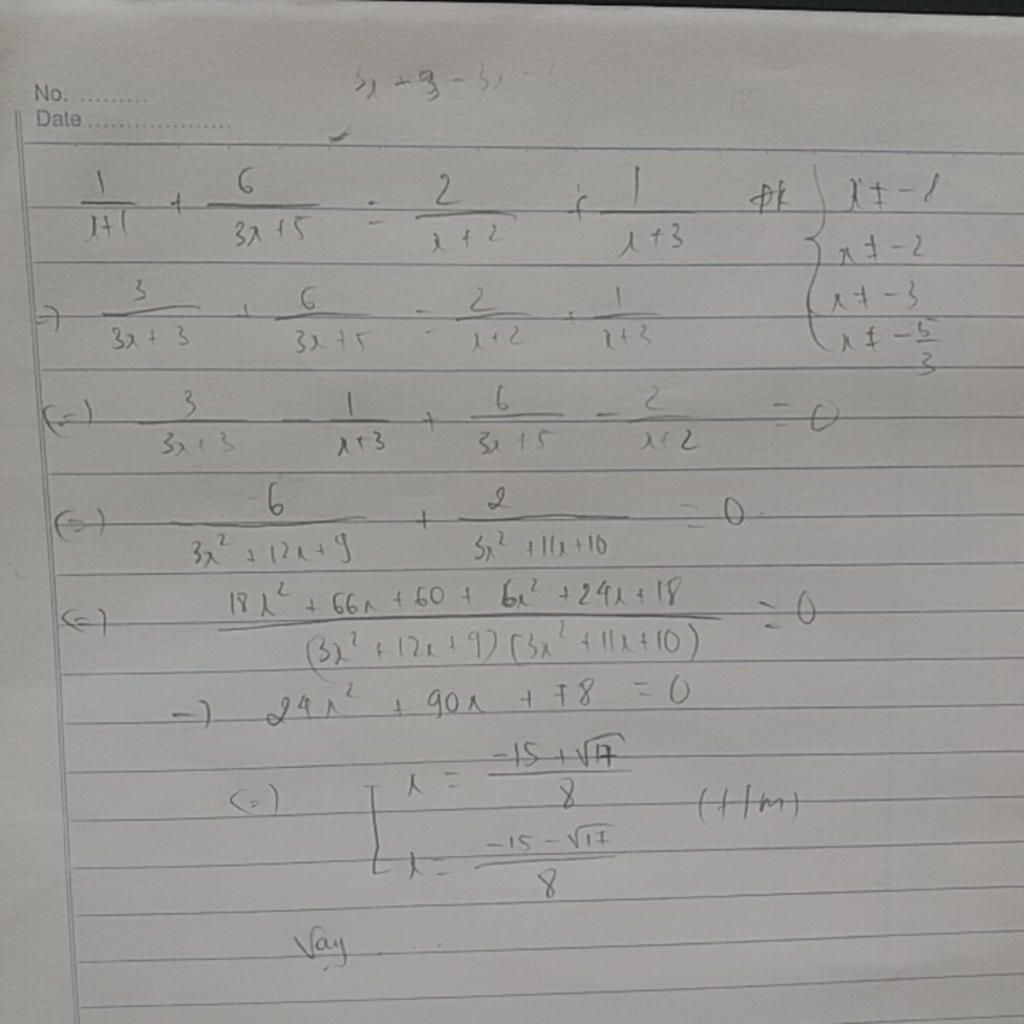 3x + 9 - 3x - 3
No. .........
Date ...................
1/(x+1) + 6/(3x+5) = 2/(x+2) + 1/(x+3) đk { x ≠ -1
x ≠ -2
=) 3/(3x+3) + 6/(3x+5) = 2/(x+2) + 1/(x+3) x ≠ -3
x ≠ -5/3
(=) 3/(3x+3) - 1/(x+3) + 6/(3x+5) - 2/(x+2) = 0
(=) 6/(3x² + 12x + 9) + 2/(3x² + 11x + 10) = 0
(=) (18x² + 66x + 60 + 6x² + 24x + 18)/((3x² + 12x + 9)(3x² + 11x + 10)) = 0
=) 24x² + 90x + 78 = 0
(=) [ x = (-15 + √17)/8 (t/m)
x = (-15 - √17)/8
Vậy ...